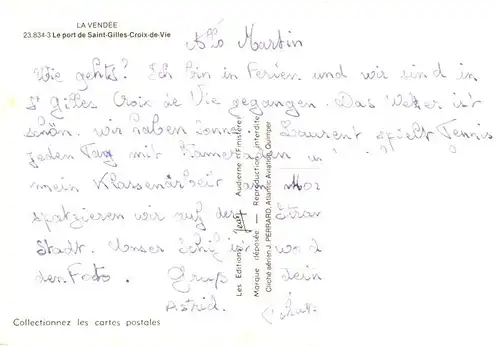 LA VENDÉE
23.834-3 Le port de Saint-Gilles-Croix-de-Vie
Allo Martin
Wie gehts? Ich bin in Ferien und wir sind in
St Gilles Croix de Vie gegangen. Das Wetter ist
schön. wir haben Sonne. Laurent spielt Tennis
jeden Tag mit Kameraden
mein Klassenarbeit am Mor
spatzieren wir auf der Stran
Stadt. Unser Schif ist
den Foto. Gruß dein
Astrid.
Les Editions Jean Audierne et Finistère
Marque déposée — Reproduction interdite
Cliché aérien J. PERRARD, Atlantic Aviation, Quimper
Collectionnez les cartes postales